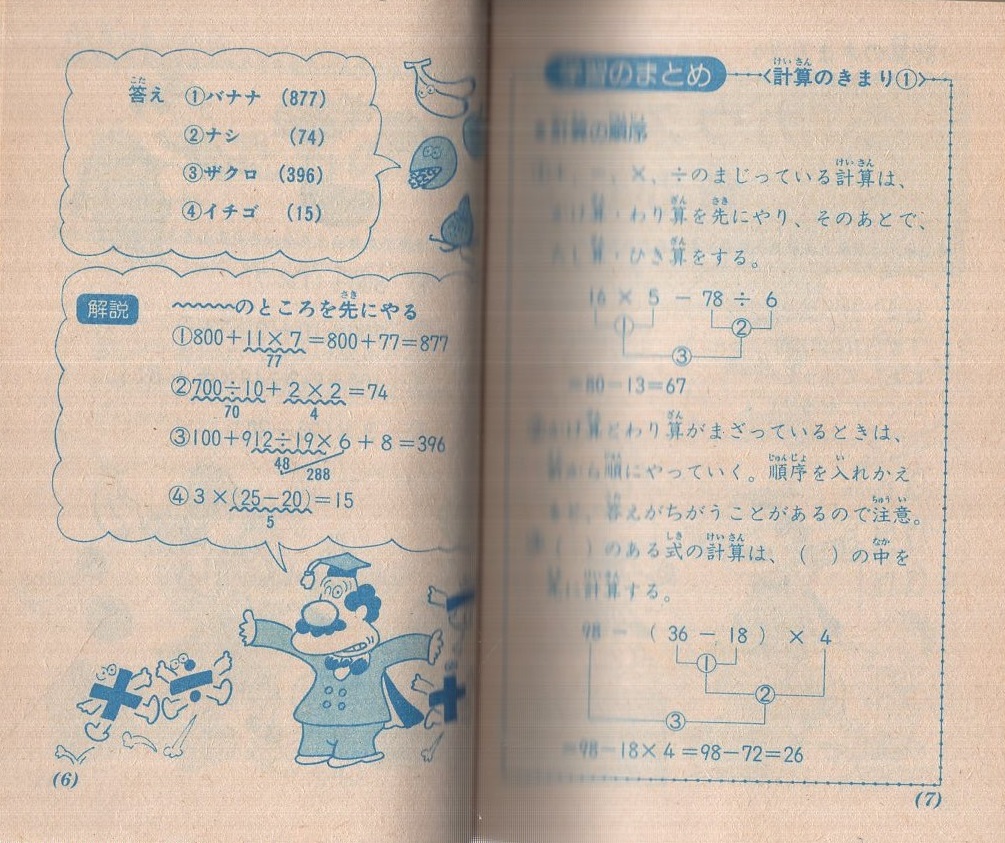 答え ①バナナ (877)
②ナシ (74)
③ザクロ (396)
④イチゴ (15)
解説 のところを先にやる
①800+11×7=800+77=877
77
②700÷10+2×2=74
70 4
③100+912÷19×6+8=396
48 288
④3×(25-20)=15
5
(6)
学習のまとめ 〈計算のきまり①〉
計算の順序
、×、÷のまじっている計算は、
かけ算・わり算を先にやり、そのあとで、
たし算・ひき算をする。
16×5-78÷6
① ②
③
=80-13=67
かけ算とわり算がまざっているときは、
から順にやっていく。順序を入れかえ
ると、答えがちがうことがあるので注意。
( )のある式の計算は、( )の中を
先に計算する。
98-(36-18)×4
①
②
③
=98-18×4=98-72=26
(7)